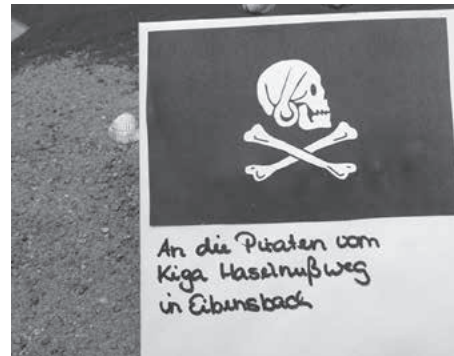 An die Piraten vom
Kiga Haselnußweg
in Eibensbach